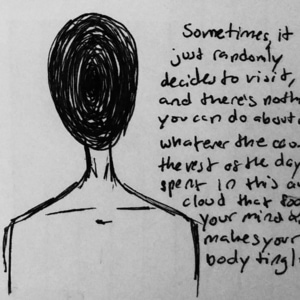 Sometimes, it
just randomly
decides to visit,
and there's
you can do
whatever the
the rest of the day
spent in this
cloud that
your mind
makes your
body